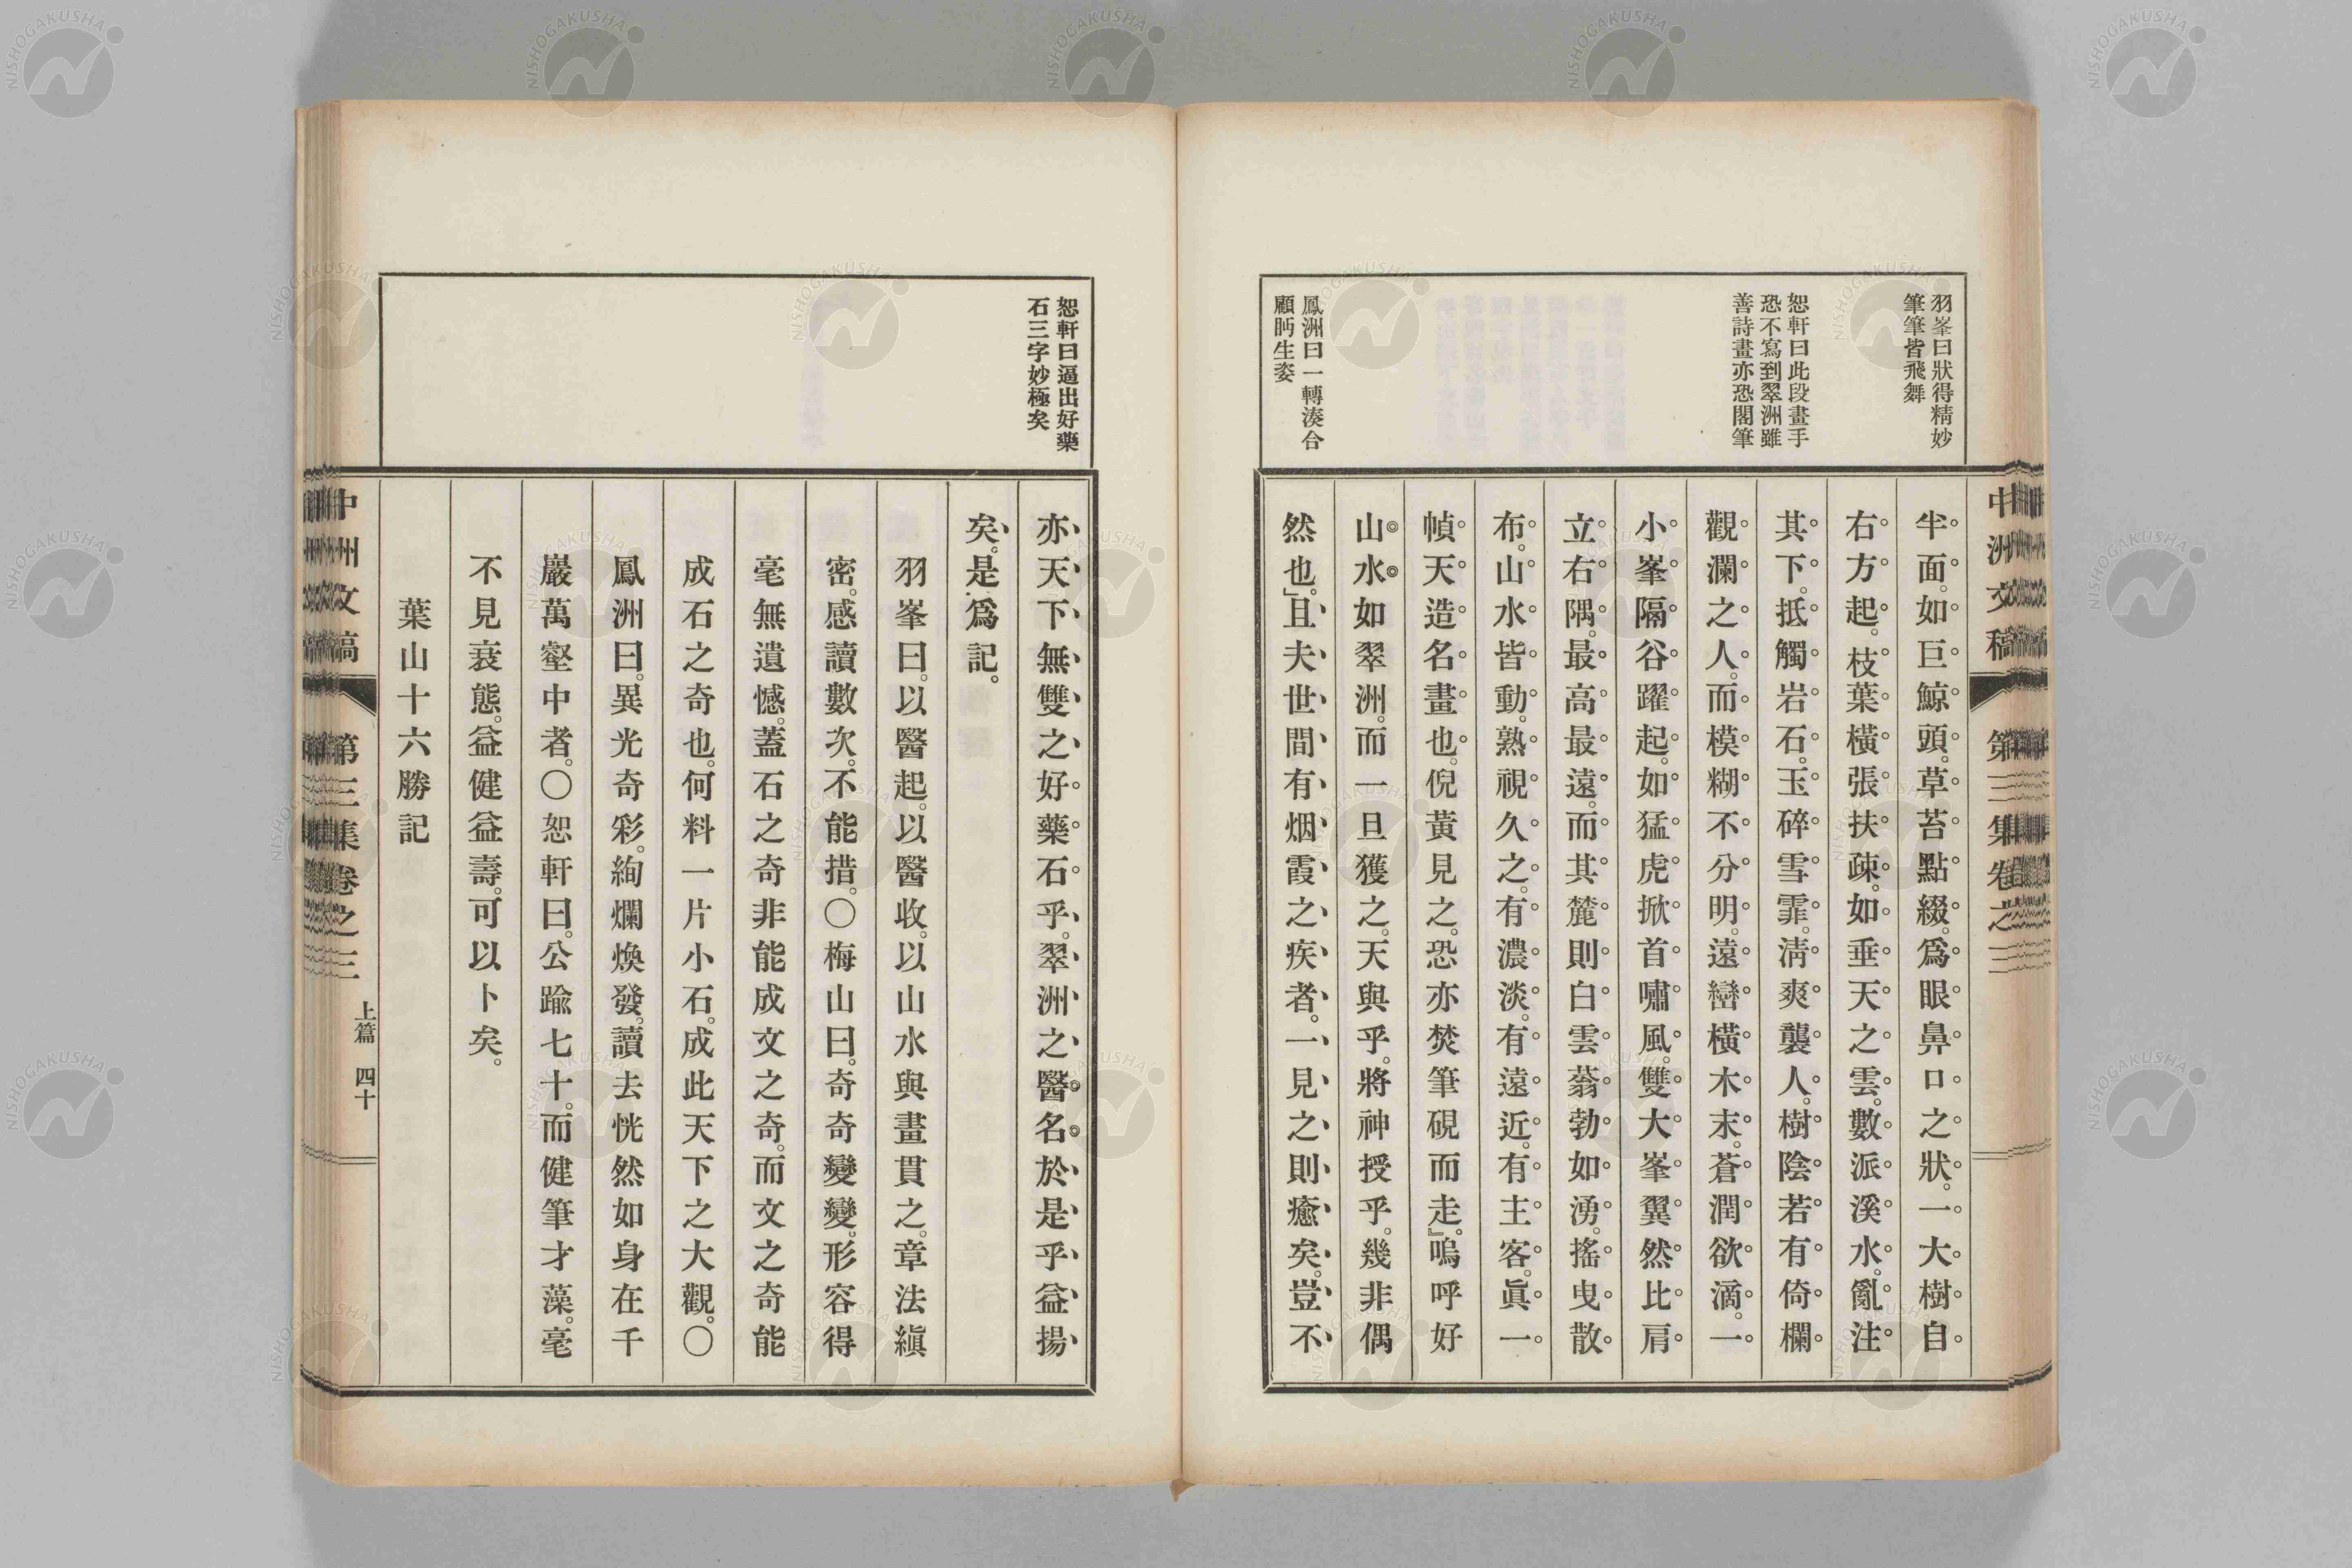 羽峯曰狀得精妙
筆筆皆飛舞
恕軒曰此段畫手
恐不寫到翠洲雖
善詩畫亦恐閣筆
鳳洲曰一轉湊合
顧眄生姿
中洲文稿 第三集卷之三
半面。如巨鯨頭。草苔點綴。爲眼鼻口之狀。一大樹自
右方起。枝葉橫張扶疎。如垂天之雲。數派溪水。亂注
其下。抵觸岩石。玉碎雪霏。淸爽襲人。樹陰若有倚欄
觀瀾之人。而模糊不分明。遠巒橫木末。蒼潤欲滴。一
小峯隔谷躍起。如猛虎掀首嘯風。雙大峯翼然比肩
立右隅。最高最遠。而其麓則白雲蓊勃如湧。搖曳散
布。山水皆動。熟視久之。有濃淡。有遠近。有主客。眞一
幀天造名畫也。倪黃見之。恐亦焚筆硯而走。』嗚呼好
山水如翠洲。而一旦獲之。天與乎。將神授乎。幾非偶
然也。』且夫世間有烟霞之疾者。一見之則癒矣。豈不
恕軒曰逼出好藥
石三字妙極矣
亦天下無雙之好藥石乎。翠洲之醫名於是乎益揚
矣。是爲記。
羽峯曰。以醫起。以醫收。以山水與畫貫之。章法縝
密。感讀數次。不能措。〇梅山曰。奇奇變變。形容得
毫無遺憾。蓋石之奇非能成文之奇。而文之奇能
成石之奇也。何料一片小石。成此天下之大觀。〇
鳳洲曰。異光奇彩。絢爛煥發。讀去恍然如身在千
巖萬壑中者。〇恕軒曰。公踰七十。而健筆才藻。毫
不見衰態。益健益壽。可以卜矣。
葉山十六勝記
中洲文稿 第三集卷之三 上篇 四十
NISHOGAKUSHA